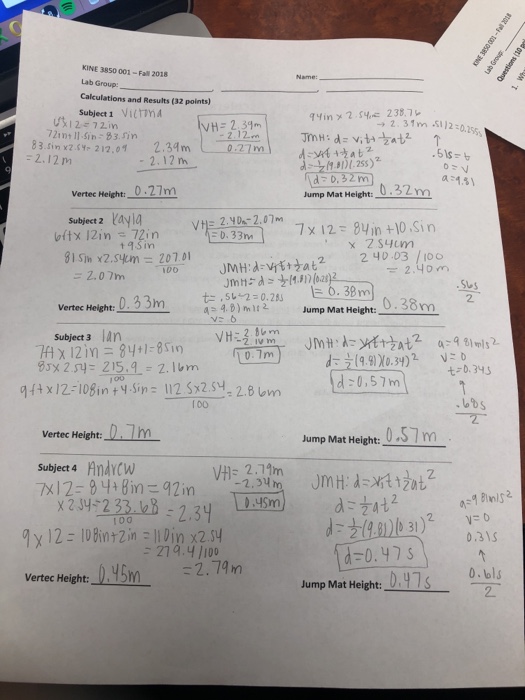 KINE 3850 001 – Fall 2018
Name:
Lab Group:
Calculations and Results (32 points)
Subject 1 Victoria
6x12=72in
72in+11.5in=83.5in
83.5in x2.54= 212.09
= 2.12m
2.39m
- 2.12m
VH= 2.39m
- 2.12m
0.27m
94in x 2.54= 238.76
→ 2.39m
.51/2=0.255s
JMH: d= vit+½at²
d=vit+½at²
d=½(9.81)(.255)²
d=0.32m
.51s=t
0=v
a=9.81
Vertec Height: 0.27m
Jump Mat Height: 0.32m
Subject 2 Kayla
6ft x 12in = 72in
+9.5in
81.5in x2.54cm = 207.01
100
= 2.07m
VH= 2.40m-2.07m
= 0.33m
7 x 12 = 84in +10.5in
x 2.54cm
240.03 /100
= 2.40m
JMH: d=vit+½at²
JMH= d= ½(9.81)(0.28)²
= 0.38m
t= .56÷2=0.28s
a= 9.81m/s²
v= 0
.56s
2
Vertec Height: 0.33m
Jump Mat Height: 0.38m
Subject 3 Ian
7ft x 12in = 84+1=85in
85x 2.54= 215.9 = 2.16m
100
9ft x12=108in+4.5in= 112.5x2.54=2.86m
100
VH= 2.86m
- 2.16m
0.7m
JMH: d= vit+½at²
d=½(9.81)(0.34)²
d=0.57m
a=9.81m/s²
v=0
t=0.34s
↑
.68s
2
Vertec Height: 0.7m
Jump Mat Height: 0.57m
Subject 4 Andrew
7x12=84+8in=92in
x 2.54=233.68 =2.34
100
9x12=108in+2in=110in x2.54
= 279.4/100
=2.79m
VH= 2.79m
-2.34m
0.45m
JMH: d=vit+½at²
d=½at²
d=½(9.81)(0.31)²
d=0.47s
a=9.81m/s²
v=0
0.31s
↑
0.61s
2
Vertec Height: 0.45m
Jump Mat Height: 0.47s
KINE 3850 001 – Fall 2018
Lab Group: